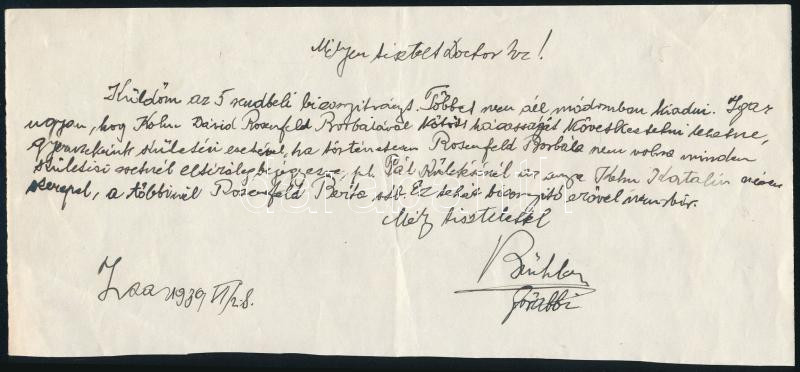 Mélyen tisztelt Doctor Úr!
Küldöm az 5 rendbeli bizonyítványt. Többet nem áll módomban kiadni. Igaz
ugyan, hogy Kohn Dávid Rosenfeld Borbálával kötött házasságát következtetni lehetne,
gyermekeink születési esetével, ha történetesen Rosenfeld Borbála nem volna minden
születési esetnél eltérőleg bejegyezve, pl. Pál születésénél az anya Kohn Katalin néven
szerepel, a többinél Rosenfeld Berta stb. Ez tehát bizonyító erővel nem bír.
Mély tisztelettel
Bühler
főrabbi
1939 VI/28.